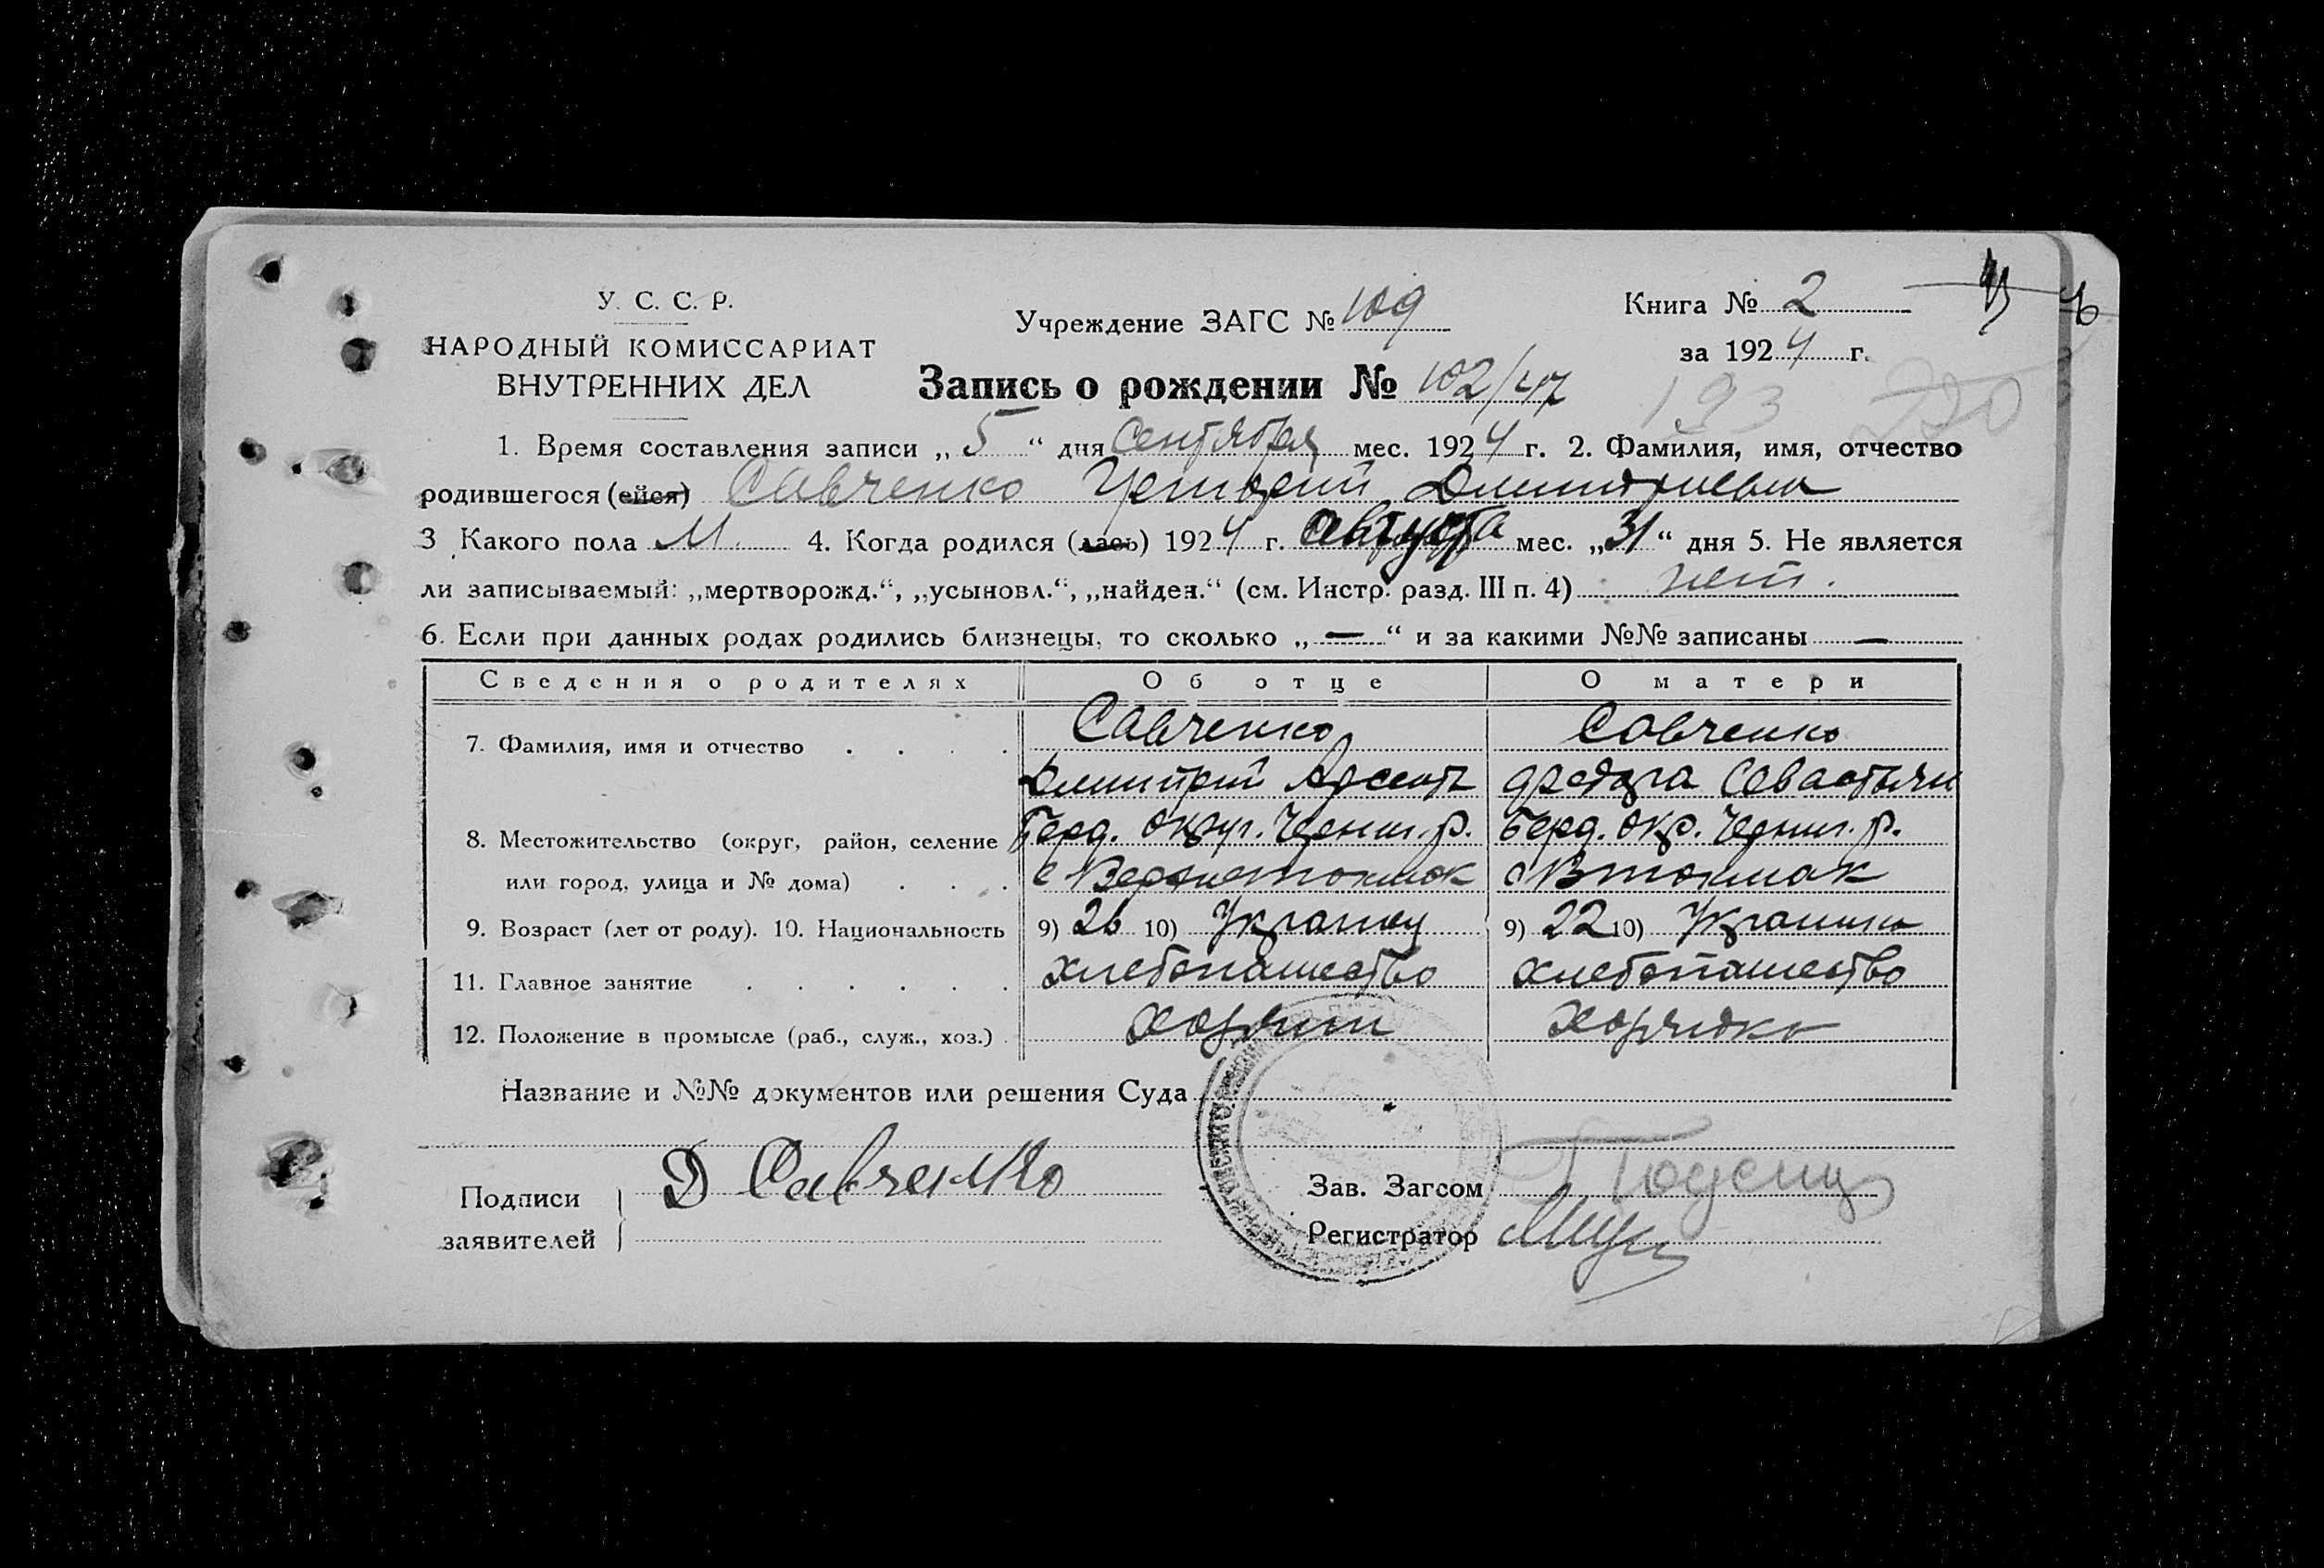 У. С. С. Р.
НАРОДНЫЙ КОМИССАРИАТ
ВНУТРЕННИХ ДЕЛ
Учреждение ЗАГС № 109
Книга № 2
за 1924 г.
Запись о рождении № 102/47
193 220
1. Время составления записи „ 5 “ дня Сентября мес. 1924 г. 2. Фамилия, имя, отчество
родившегося (ейся) Савченко Дмитриевич
3 Какого пола М. 4. Когда родился (лась) 1924 г. Августа мес. „31“ дня 5. Не является
ли записываемый: „мертворожд.“, „усыновл.“, „найден.“ (см. Инстр. разд. III п. 4) нет.
6. Если при данных родах родились близнецы, то сколько „ — “ и за какими №№ записаны —
Сведения о родителях Об отце О матери
7. Фамилия, имя и отчество . . . . Савченко Савченко
Дмитрий Арсент Севастьян
8. Местожительство (округ, район, селение Берд. Округ. Черниг. р. Берд. Окр. Черниг. р.
или город, улица и № дома) . . . с Верхнетокмак с Втокмак
9. Возраст (лет от роду). 10. Национальность 9) 26 10) Украинец 9) 22 10) Украинка
11. Главное занятие . . . . . . хлебопашество хлебопашество
12. Положение в промысле (раб., служ., хоз.) . хозяин Хозяйка
Название и №№ документов или решения Суда
Подписи
заявителей
Д Савченко
Зав. Загсом
Регистратор